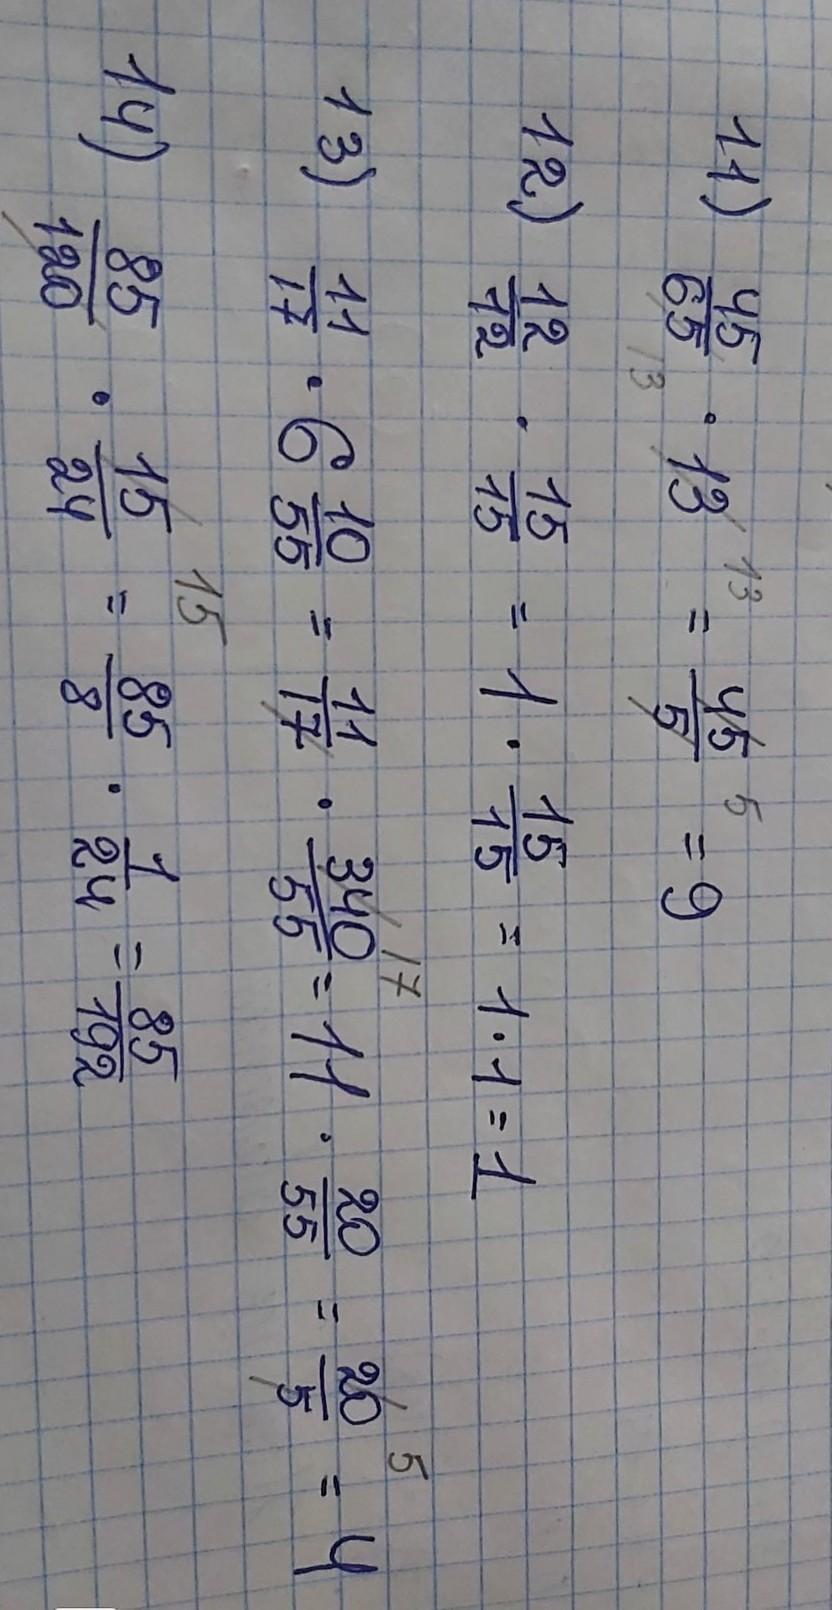 11) 45/65 · 13 = 45/5 = 9
13 13 5
12) 12/12 · 15/15 = 1 · 15/15 = 1 · 1 = 1
13) 11/17 · 6 10/55 = 11/17 · 340/55 = 11 · 20/55 = 20/5 = 4
17 5
14) 85/120 · 15/24 = 85/8 · 1/24 = 85/192
15